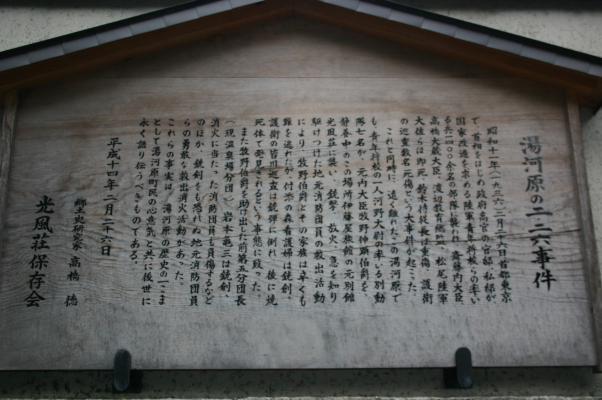 湯河原の二・二六事件
昭和十一年(一九三六)二月二十六日首都東京
で、首相をはじめ政府高官の官邸、私邸が
国家改造を求める陸軍青年将校らの率い
る兵一四〇〇余名の部隊に襲われ、斎藤内大臣
高橋大蔵大臣、渡辺教育総監、松尾陸軍
大佐らは即死、鈴木侍従長は重傷、護衛
の巡査数名死傷という大事件が起こった。
これと同時に、遠く離れたこの湯河原で
も、青年将校の一人河野大尉の率いる別動
隊七名が、元内大臣牧野伸顕伯爵を
静養中のこの場所伊藤屋旅館の元別館
光風荘に襲い、銃撃、放火、急を知り
駆けつけた地元消防団員の救出活動
により、牧野伯爵とその家族は辛くも
難を逃れたが、付添の森看護婦は銃創、
護衛の皆川巡査は銃弾に倒れ、後に焼
死体で発見されるという事態に致った。
また牧野伯爵を助け出した前第五分団長
(現温泉場分団)岩本亀三は銃創、
消火に当たった消防団員も負傷するなど
のほか、銃剣をも恐れぬ地元消防団員
らの勇敢な救出消火活動があった。
これらの事実は、湯河原の歴史の一こま
として湯河原町民の心意気と共に後世に
永く語り伝うべきものである。
平成十四年二月二十六日
郷土史研究家 高橋 徳
光風荘保存会